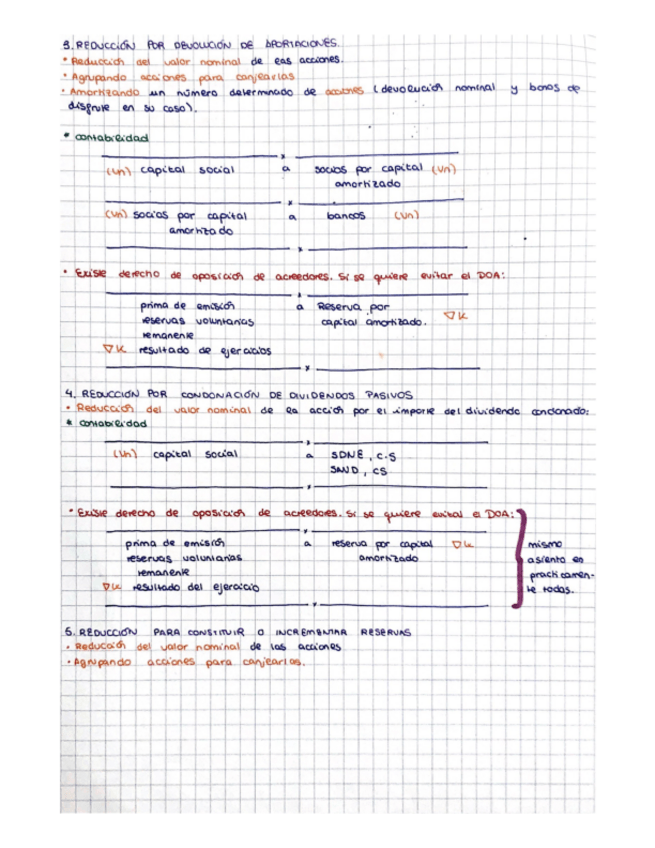 3. REDUCCIÓN POR DEVOLUCIÓN DE APORTACIONES.
• Reducción del valor nominal de las acciones.
• Agrupando acciones para canjearlas
• Amortizando un número determinado de acciones (devolución nominal y bonos de
disfrute en su caso).
* contabilidad
(vn) capital social a socios por capital (vn)
amortizado
(vn) socios por capital a bancos (vn)
amortizado
• Existe derecho de oposición de acreedores. Si se quiere evitar el DOA:
prima de emisión a Reserva por
reservas voluntarias capital amortizado. ∇K
remanente
∇K resultado de ejercicios
4. REDUCCIÓN POR CONDONACIÓN DE DIVIDENDOS PASIVOS
• Reducción del valor nominal de la acción por el importe del dividendo condonado:
* contabilidad
(vn) capital social a SDNE, C.S
SAND, CS
• Existe derecho de oposición de acreedores. Si se quiere evitar el DOA:
prima de emisión a reserva por capital ∇K mismo
reservas voluntarias amortizado asiento en
remanente practicamen-
∇K resultado del ejercicio te todas.
5. REDUCCIÓN PARA CONSTITUIR O INCREMENTAR RESERVAS
• Reducción del valor nominal de las acciones
• Agrupando acciones para canjearlas.